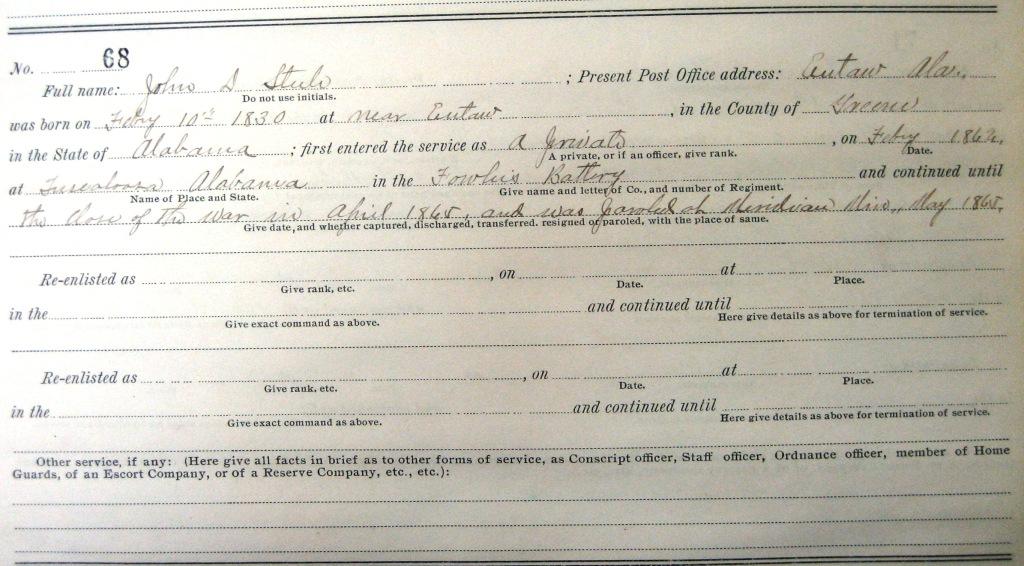 No. 68
Full name: John D Steele ; Present Post Office address: Eutaw Ala.
Do not use initials.
was born on Feby 10th 1830 at near Eutaw , in the County of Greene
in the State of Alabama ; first entered the service as a private , on Feby 1862,
A private, or if an officer, give rank. Date.
at Tuscaloosa Alabama in the Fowlkes Battery and continued until
Name of Place and State. Give name and letter of Co., and number of Regiment.
the close of the war in April 1865, and was paroled at Meridian Miss, May 1865.
Give date, and whether captured, discharged, transferred. resigned or paroled, with the place of same.
Re-enlisted as , on at
Give rank, etc. Date. Place.
in the and continued until
Give exact command as above. Here give details as above for termination of service.
Re-enlisted as , on at
Give rank, etc. Date. Place.
in the and continued until
Give exact command as above. Here give details as above for termination of service.
Other service, if any: (Here give all facts in brief as to other forms of service, as Conscript officer, Staff officer, Ordnance officer, member of Home
Guards, of an Escort Company, or of a Reserve Company, etc., etc.):